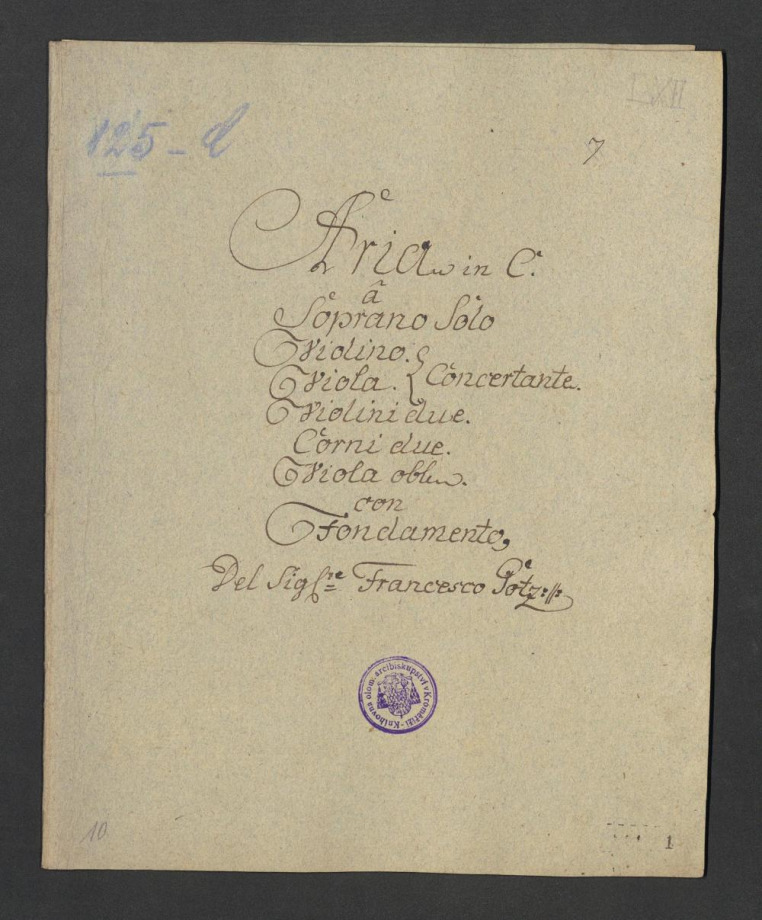 LXII
125 - l
7
Aria in C.
â
Soprano Solo
Violino.
Viola. } Concertante.
Violini due.
Corni due.
Viola obl.
con
Fondamento,
Del Sig^re Francesco Götz
Knihovna olom. arcibiskupství v Kroměříži
10
1